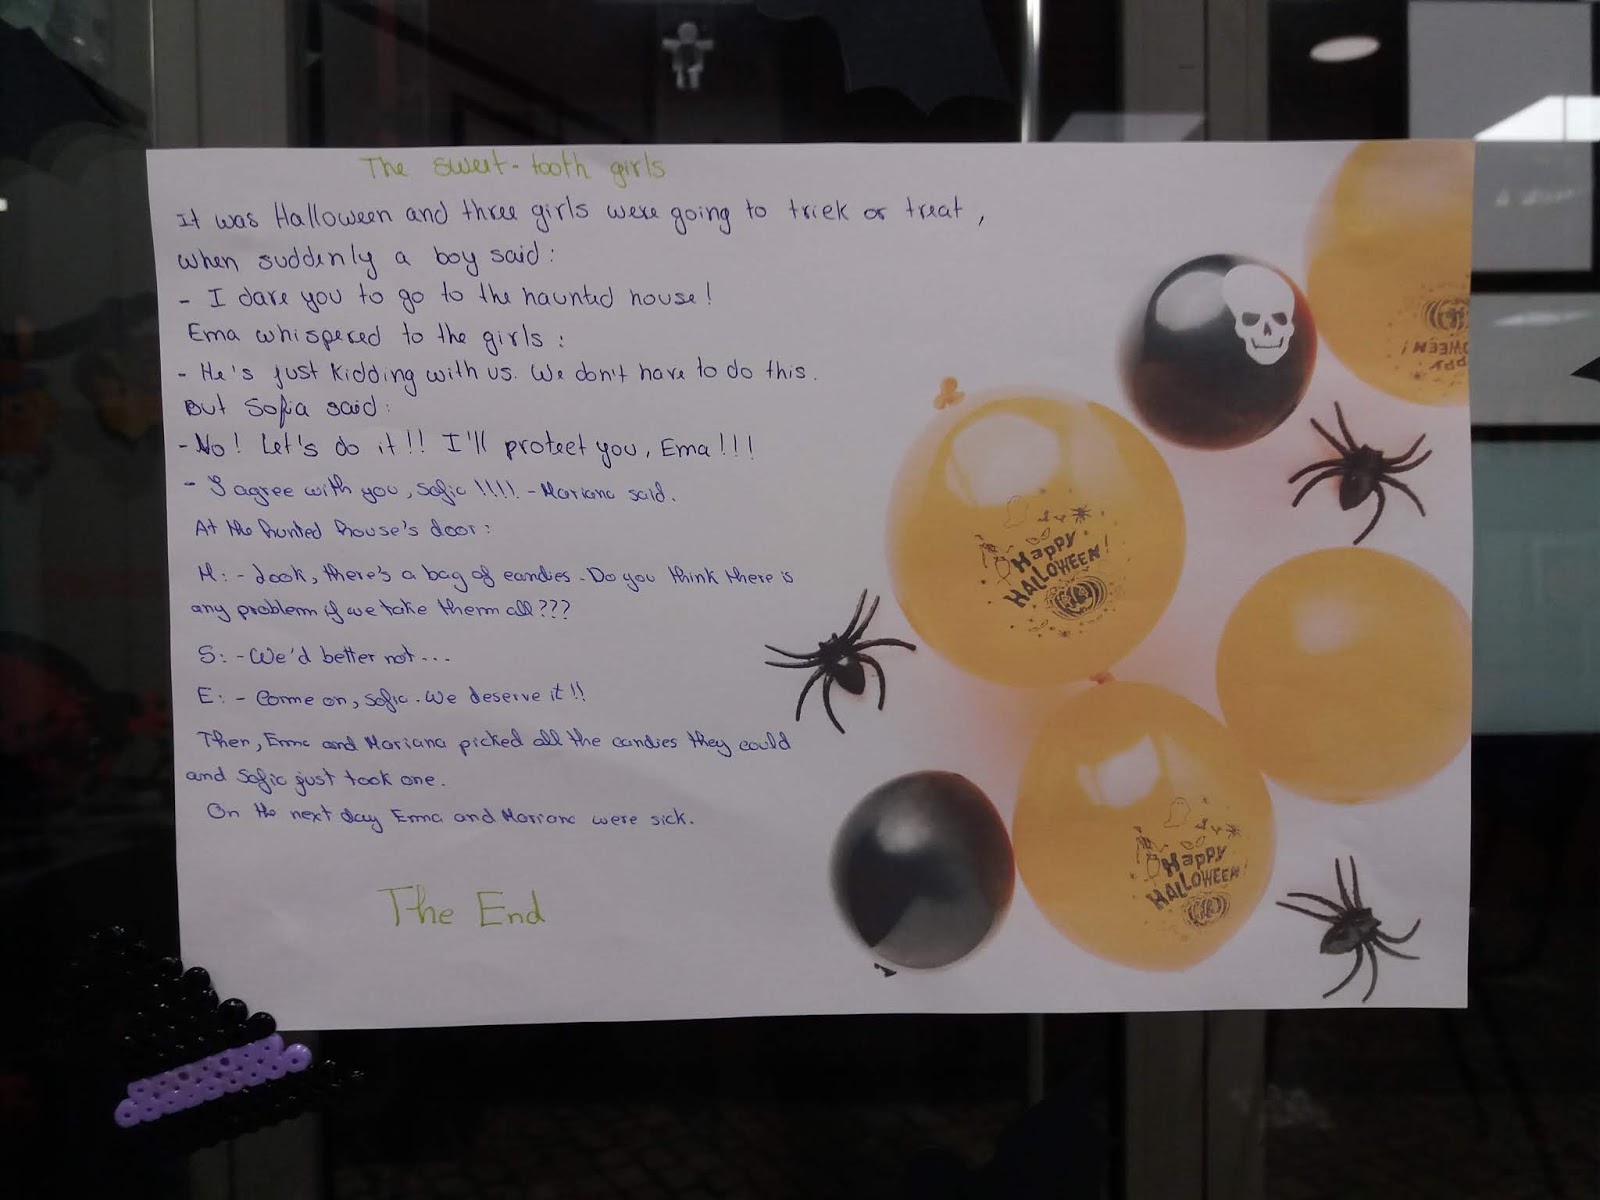 The sweet-tooth girls
It was Halloween and three girls were going to trick or treat,
when suddenly a boy said:
- I dare you to go to the haunted house!
Ema whispered to the girls:
- He's just kidding with us. We don't have to do this.
But Sofia said:
- No! Let's do it!! I'll protect you, Ema!!!
- I agree with you, Sofia!!!! - Mariana said.
At the hunted house's door:
M: - Look, there's a bag of candies. Do you think there is
any problem if we take them all???
S: - We'd better not...
E: - Come on, Sofia. We deserve it!!
Then, Ema and Mariana picked all the candies they could
and Sofia just took one.
On the next day Ema and Mariana were sick.
The End
Happy
HALLOWEEN!
Happy
HALLOWEEN!
Happy
HALLOWEEN!